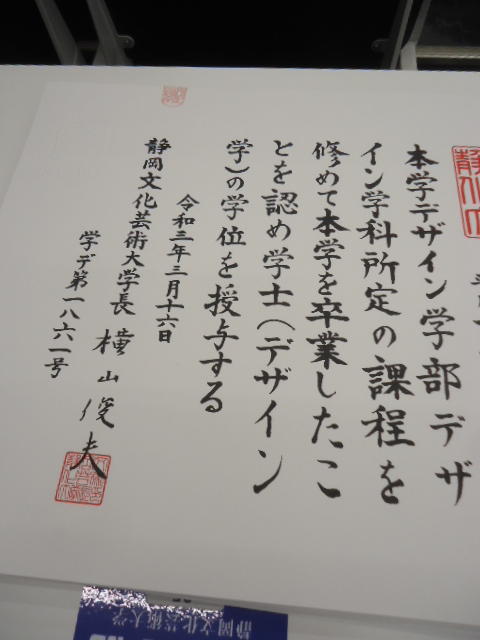 本学デザイン学部デザ
イン学科所定の課程を
修めて本学を卒業したこ
とを認め学士(デザイン
学)の学位を授与する
令和三年三月十六日
静岡文化芸術大学長 横山俊夫
学デ第一八六一号
静岡文化芸術大学